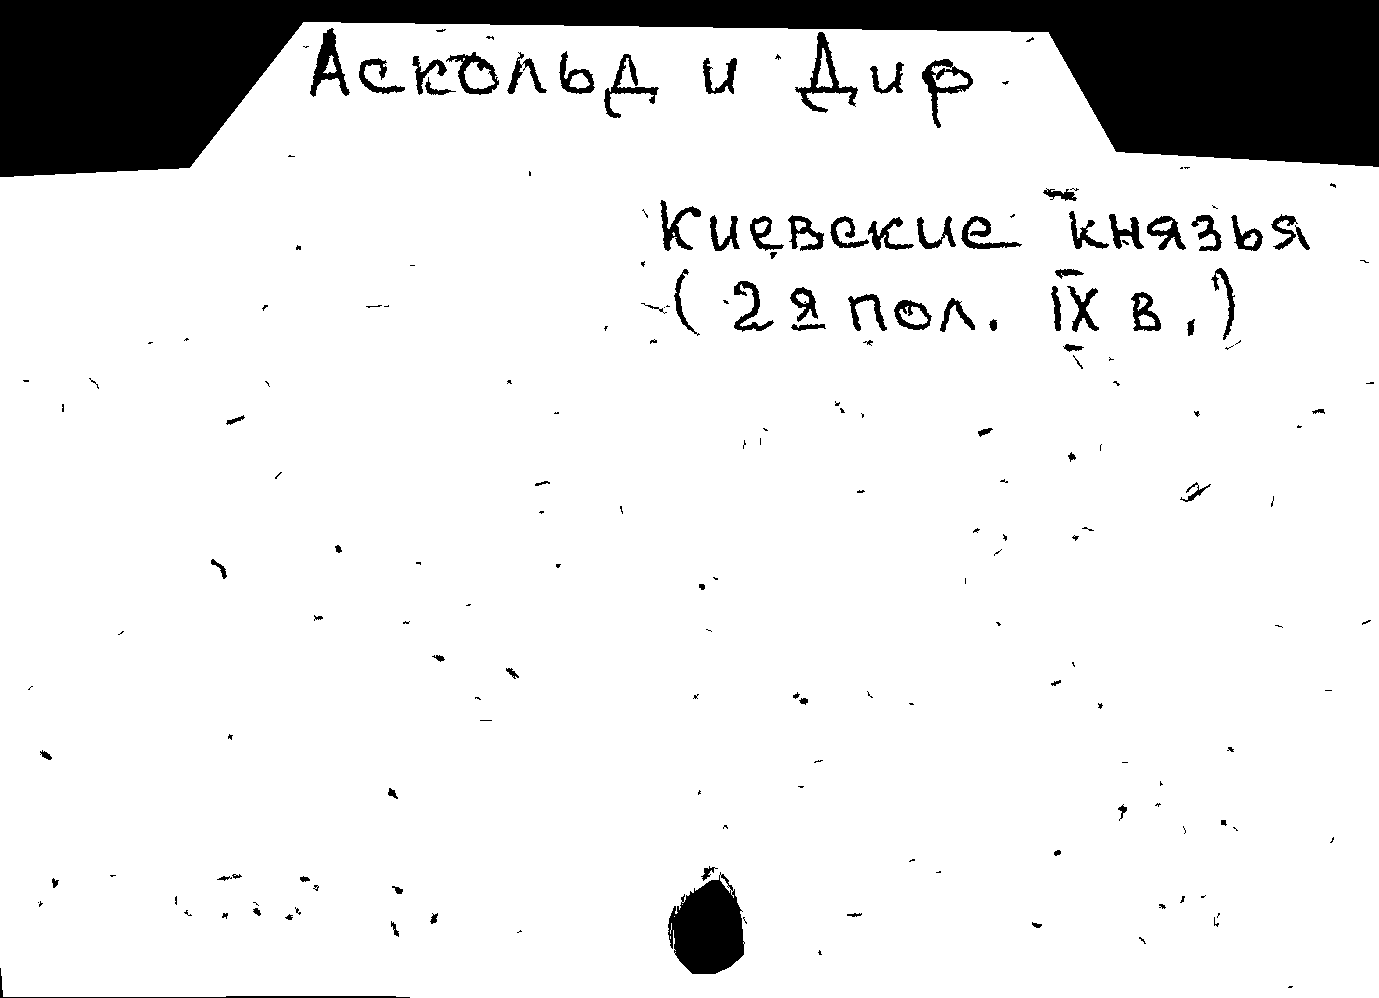 Аскольд и Дир
Киевские князья
(2я пол. IX в.)